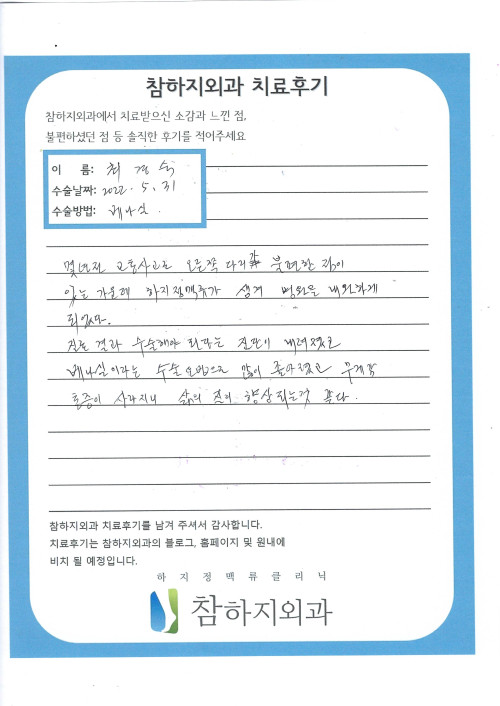 참하지외과 치료후기
참하지외과에서 치료받으신 소감과 느낀 점,
불편하셨던 점 등 솔직한 후기를 적어주세요
이 름: 최경숙
수술날짜: 2022. 5. 31
수술방법: 베나실.
몇년전 교통사고로 오른쪽 다리가 불편한 점이
있는 가운데 하지정맥류가 생겨 병원을 내원하게
되었다.
진료 결과 수술해야 된다는 진단이 내려졌고
베나실이라는 수술 요법으로 많이 좋아졌고 무게감
통증이 사라지니 삶의 질이 향상되는것 같다.
참하지외과 치료후기를 남겨 주셔서 감사합니다.
치료후기는 참하지외과의 블로그, 홈페이지 및 원내에
비치 될 예정입니다.
하지정맥류클리닉
참하지외과